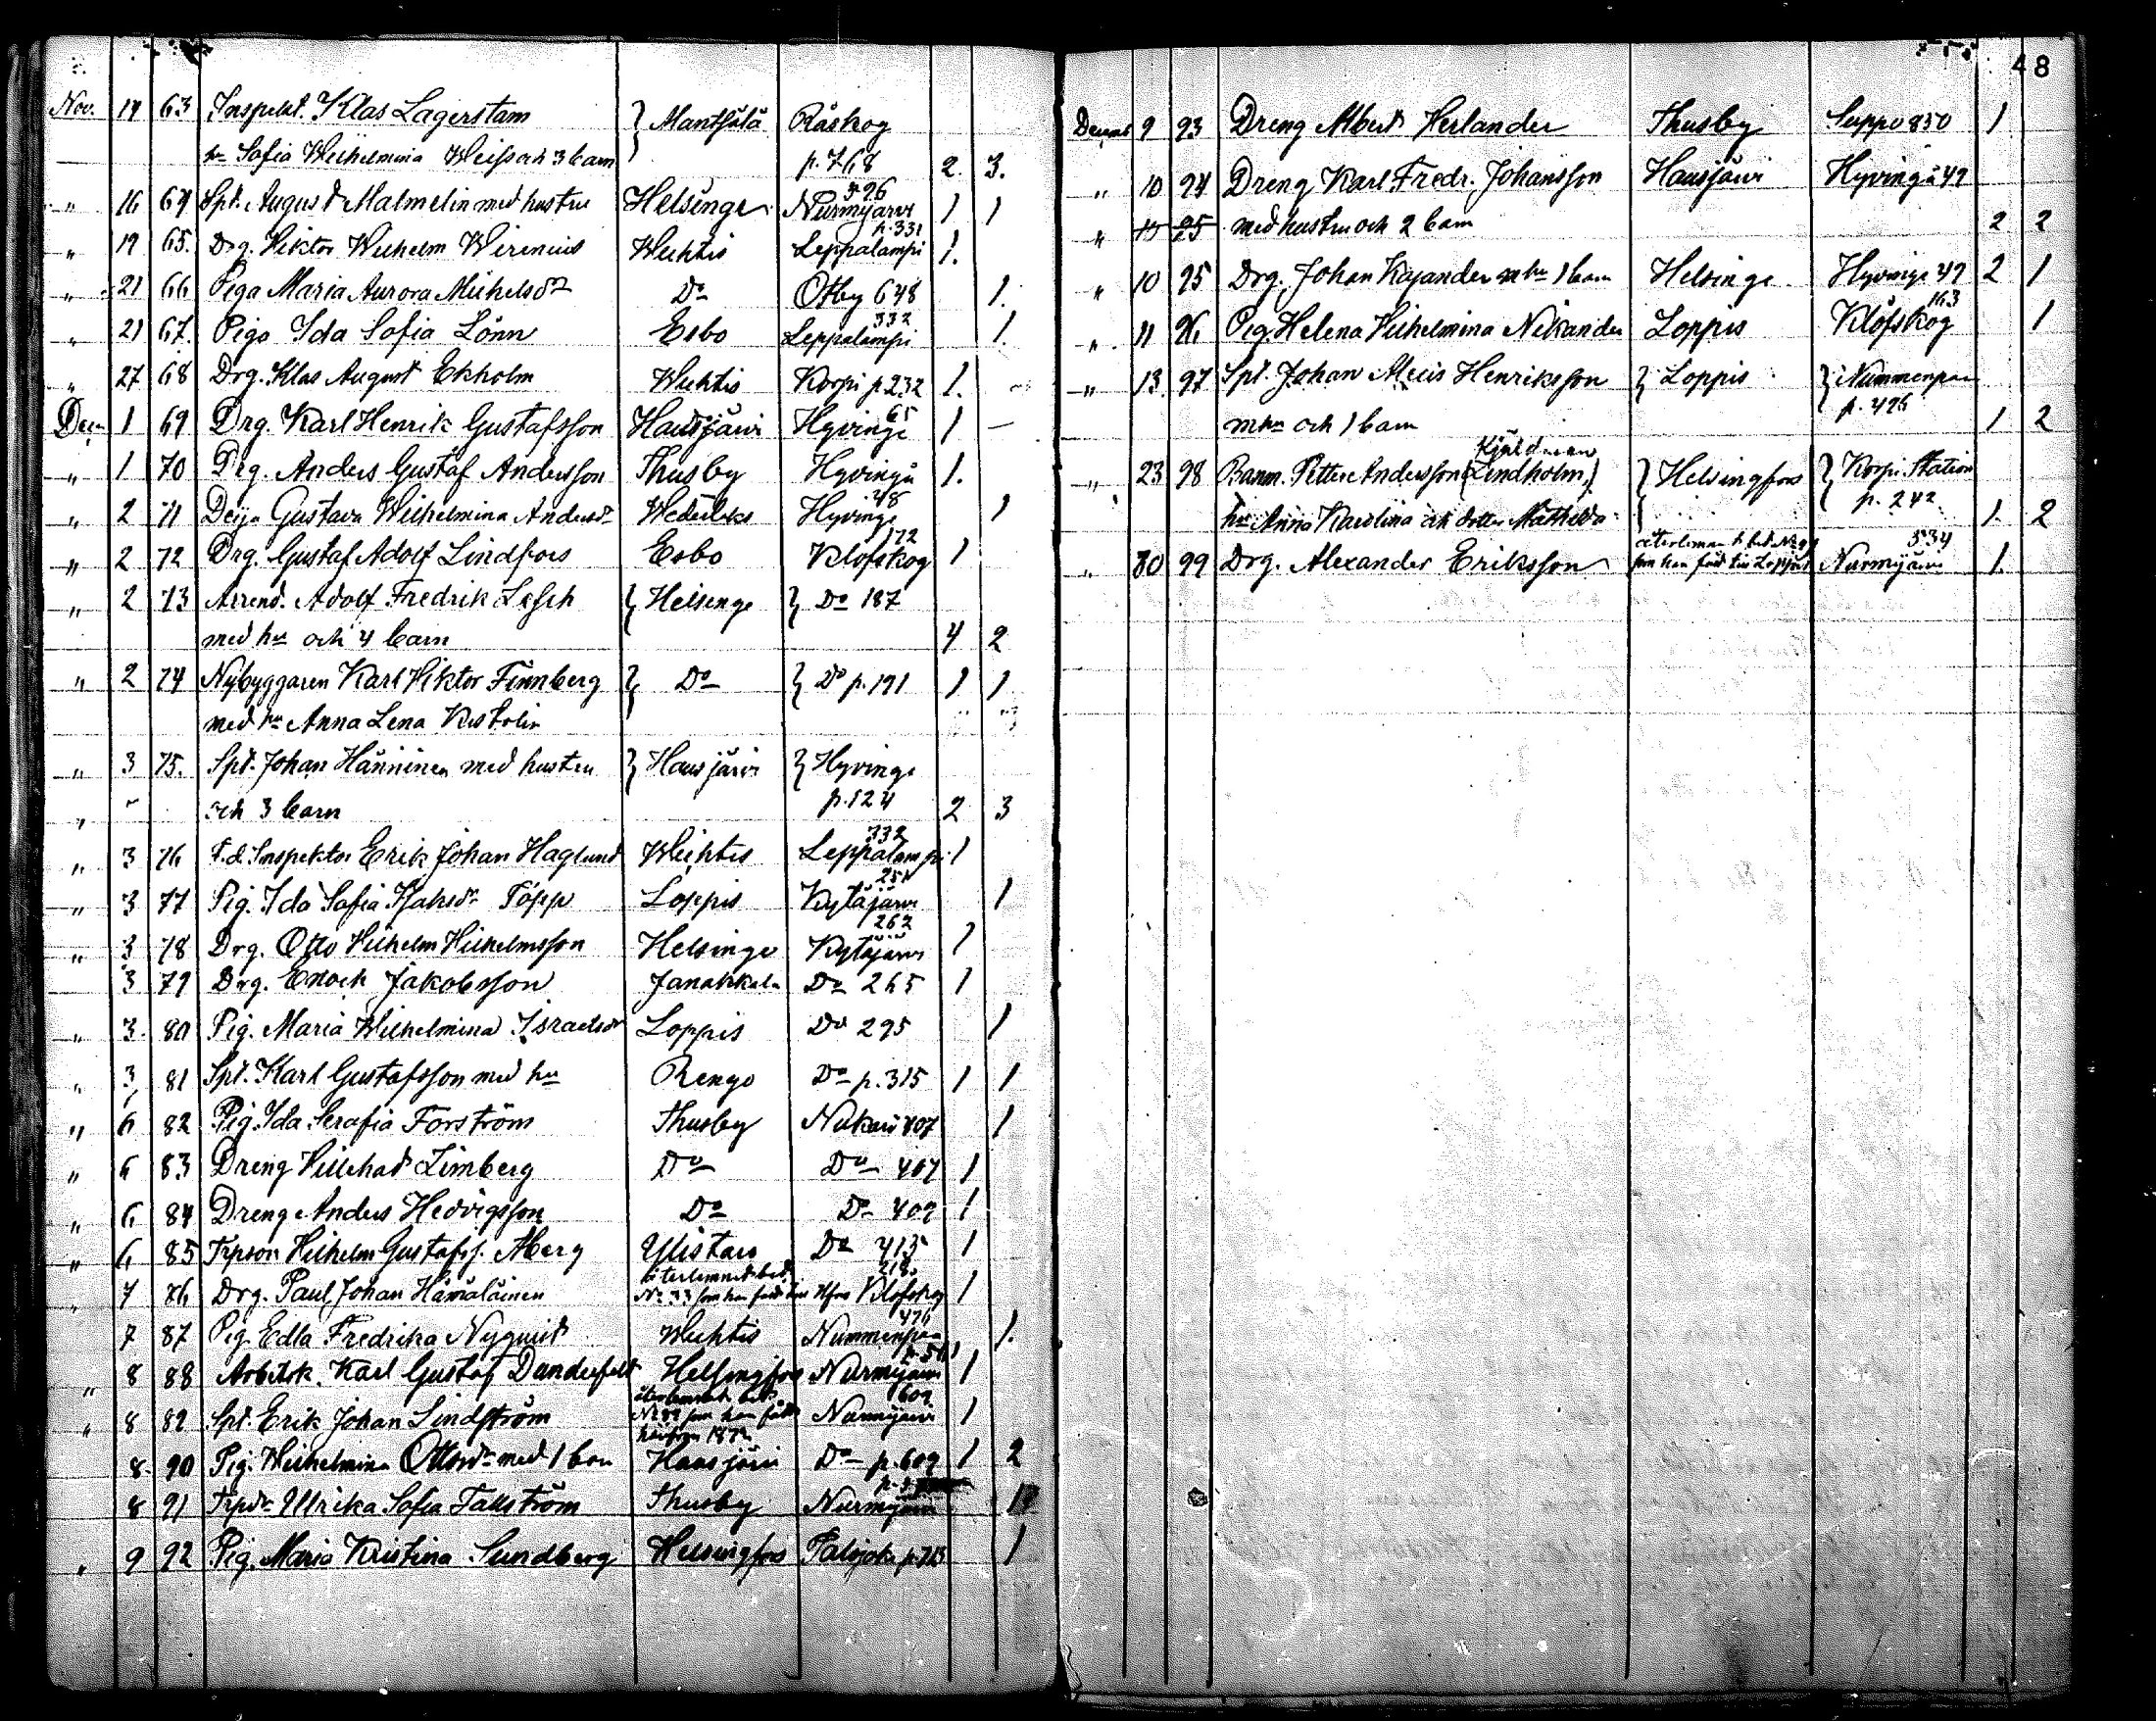 48
Nov. 14 63 Inspekt. Klas Lagerstam } Mantsälä Råskog
hu Sofia Wilhelmina Weiss och 3 barn p. 768 2. 3.
" 16 64 Spt. August Malmelin med hustru Helsinge Nurmijärvi 596 1 1
" 19 65. Drg. Viktor Wilhelm Wirenius Wichtis Leppälampi p. 331 1.
" 21 66 Piga Maria Aurora Michelsdr Do Otby 648 1.
" 21 67. Piga Ida Sofia Lönn Esbo Leppälampi 332 1.
" 27 68 Drg. Klas August Ekholm Wichtis Korpi p. 232 1.
Dec. 1 69 Drg. Karl Henrik Gustafsson Hausjärvi Hyvinge 65 1 –
" 1 70 Drg. Anders Gustaf Andersson Thusby Hyvingä 1.
" 2 71 Deija Gustava Wilhelmina Andersdr Hyvinge 48 1
" 2 72 Drg. Gustaf Adolf Lindfors Esbo Klöfskog 172 1
" 2 73 Arrend. Adolf Fredrik Lesch } Helsinge } Do 187
med hu och 4 barn 4 2
" 2 74 Nybyggaren Karl Viktor Finnberg } Do } Do p. 191 1 1
med hu Anna Lena
" 3 75. Spt. Johan Hänninen med hustru } Hausjärvi } Hyvinge
" och 3 barn p. 124 2 3
" 3 76 F.d. Inspektor Erik Johan Haglund Wichtis Leppälampi 332 1
" 3 77 Pig. Ida Sofia Isaksdr Töpp Loppis Kytäjärvi 251 1
" 3 78 Drg. Otto Vilhelm Vilhelmsson Helsinge Kytäjärvi 262 1
3 79 Drg. Enock Jakobsson Janakkala Do 265 1
" 3. 80 Pig. Maria Wilhelmina Israelsdr Loppis Do 295 1
" 3 81 Spt. Karl Gustafsson med hu Rengo Do p. 315 1 1
" 6 82 Pig. Ida Serafia Forström Thusby Nukari 407 1
" 6 83 Dreng Villehad Limberg Do Do 467 1
" 6 84 Dreng Anders Hedvigsson Do Do 409 1
" 6 85 Trpson Vilhelm Gustafss. Åberg Ylistaro Do 413 1
" 7 76 Drg. Paul Johan Hämäläinen återlemnat bet. No 33 som han fått till Hfors Klöfskog 218. 1
7 87 Pig. Edla Fredrika Nyquist Wichtis Nummenpää 476 1.
" 8 88 Arbetsk. Karl Gustaf Danderfelt Helsingfors Nurmijärvi 1
" 8 89 Spt. Erik Johan Lindström återlemnat bet. som han fått härifrån Nurmijärvi 609 1
8 90 Pig. Wilhelmina Ottosdr med 1 barn Hausjärvi Do p. 609 1 2
8 91 Trpdr Ulrika Sofia Tallström Thusby Nurmijärvi
" 9 92 Pig. Maria Kristina Sundberg Helsingfors Palojoki 1
9 93 Dreng Albert Herlander Thusby Seppo 850 1
" 10 94 Dreng Karl Fredr. Johansson Hausjärvi Hyvingä 49
" 10 95 med hustru och 2 barn 2 2
" 10 95 Drg. Johan Kajander m hu 1 barn Helsinge Hyvinge 49 2 1
" 11 96 Pig. Helena Vilhelmina Nikander Loppis Klöfskog 163 1
" 13 97 Spt. Johan Henriksson } Loppis } Nummenpää
m hu och 1 barn p. 426 1 2
" 23 98 Banm. Petter Andersson (Lindholm) Kjäldman } Helsingfors } Korpi Station
hu Anna Karolina och dotter Mathilda p. 242 1. 2
" 30 99 Drg. Alexander Eriksson som han fått till Loppis Nurmijärvi 534 1.